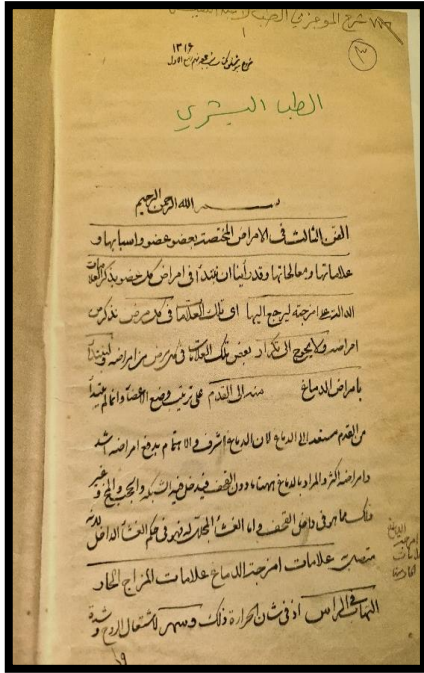 شرح الموجز في الطب
١
٣
١٣١٦
الطب البشري
بسم الله الرحمن الرحيم
الفن الثالث فى الامراض المختصة بعضو عضو واسبابها و
علاماتها ومعالجاتها وقد راينا ان نبتدأ فى امراض كل عضو بذكر العلامات
الدالة على امزجته ليرجع اليها اى تلك العلامات فى كل مرض نذكر من
امراضه ولا يحوج الى تكرار بعض تلك العلامات فى كل مرض من امراضه ولنبتدأ
بامراض الدماغ منه الى القدم على ترتيب وضع الاعضاء وانما لم يبتدأ
من القدم مصعدا الى الدماغ لان الدماغ اشرف والاهتمام بدفع امراضه اشد
وامراضه اكثر والمراد بالدماغ ههنا ما دون القحف فيدخل فيه الشبكة والحجب والمخ وغير
ذلك مما هو فى داخل القحف واما الغشاء المجلل له فهو فى حكم الغشاء الداخل
متصل به علامات امزجة الدماغ علامات المزاج الحار
التهاب فى الراس اذ فى شان الحرارة ذلك وسهر لاشتعال الروح وشدة